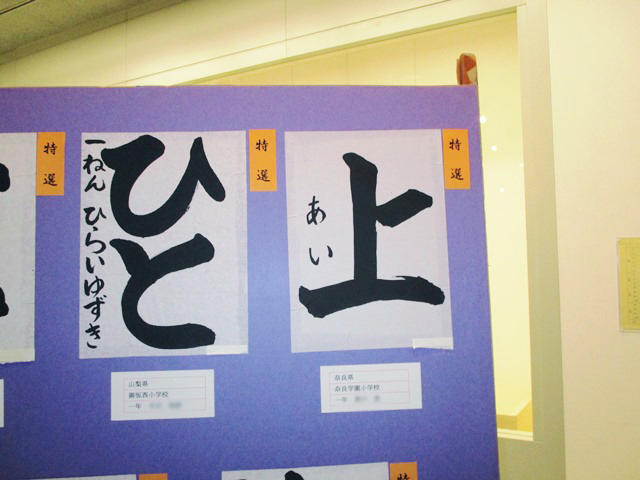 特選
上
あい
特選
ひと
一ねん ひらいゆずき
特選
奈良県
奈良学園小学校
一年
山梨県
御坂西小学校
一年